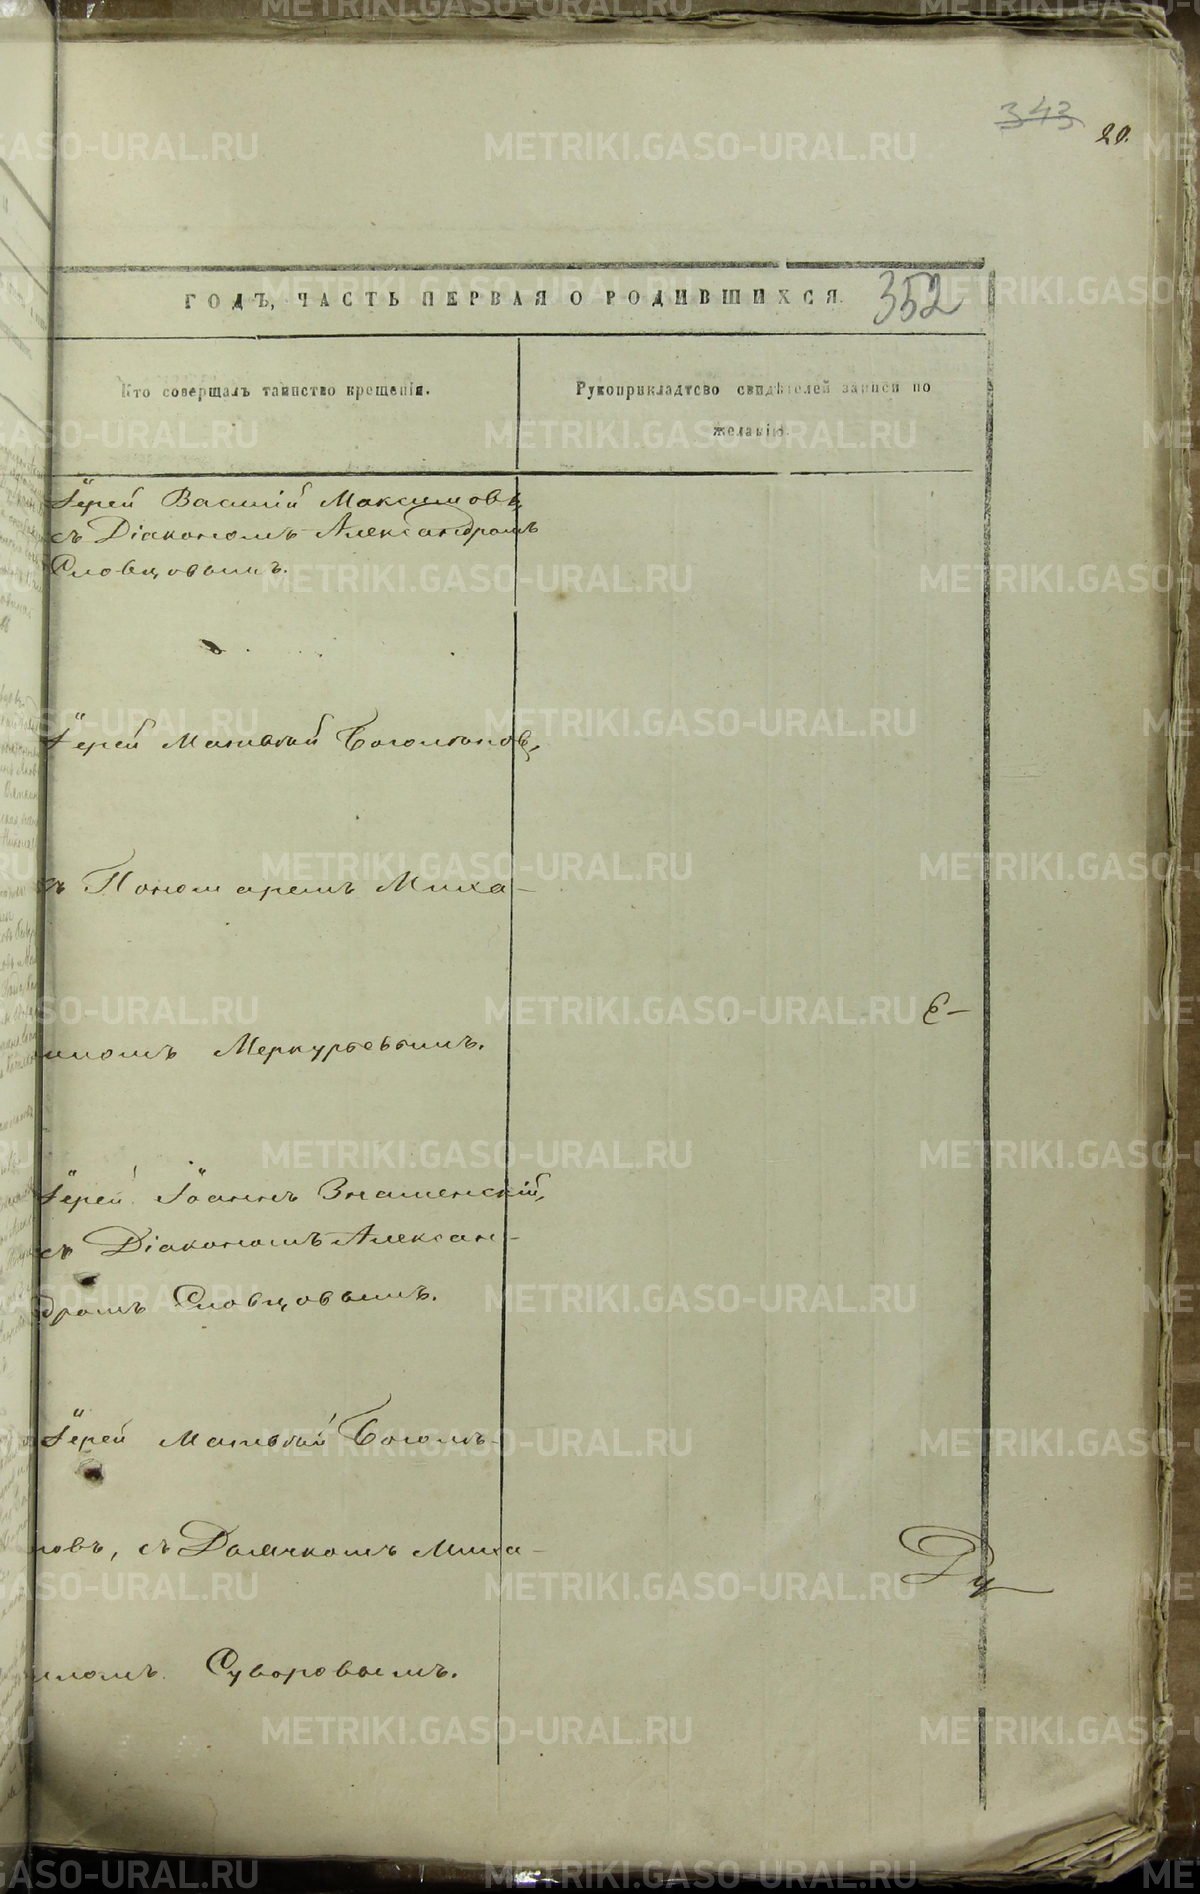 343
20.
ГОДЪ, ЧАСТЬ ПЕРВАЯ О РОДИВШИХСЯ.
352
Кто совершалъ таинство крещенія.
Рукоприкладтсво свидѣтелей записи по
желанію.
Іерей Василій Максимовъ
съ Діакономъ Александромъ
Словцовымъ.
Іерей Матвѣй Боголѣповъ,
съ Пономаремъ Миха-
Е-
иломъ Меркурьевымъ.
Іерей Іоаннъ Знаменскій,
съ Діакономъ Алексан-
дромъ Словцовымъ.
Іерей Матвѣй Боголѣ-
повъ, съ Дьячкомъ Миха-
Ру
иломъ Суворовымъ.
METRIKI.GASO-URAL.RU